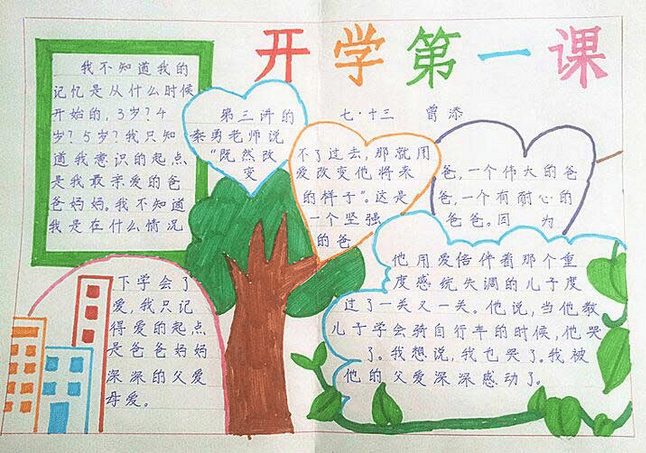 开学第一课
七·十三 曾添
我不知道我的
记忆是从什么时候
开始的,3岁?4
岁?5岁?我只知
道我意识的起点
是我最亲爱的爸
爸妈妈。我不知道
我是在什么情况
下学会了
爱,我只记
得爱的起点
是爸爸妈妈
深深的父爱
母爱。
第三讲的
秦勇老师说
“既然改
变
不了过去,那就用
爱改变他将来
的样子”。这是
一个坚强
的爸
爸,一个伟大的爸
爸,一个有耐心的
爸爸。因为
他用爱陪伴着那个重
度感统失调的儿子度
过了一关又一关。他说,当他教
儿子学会骑自行车的时候,他哭
了。我想说,我也哭了。我被
他的父爱深深感动了。